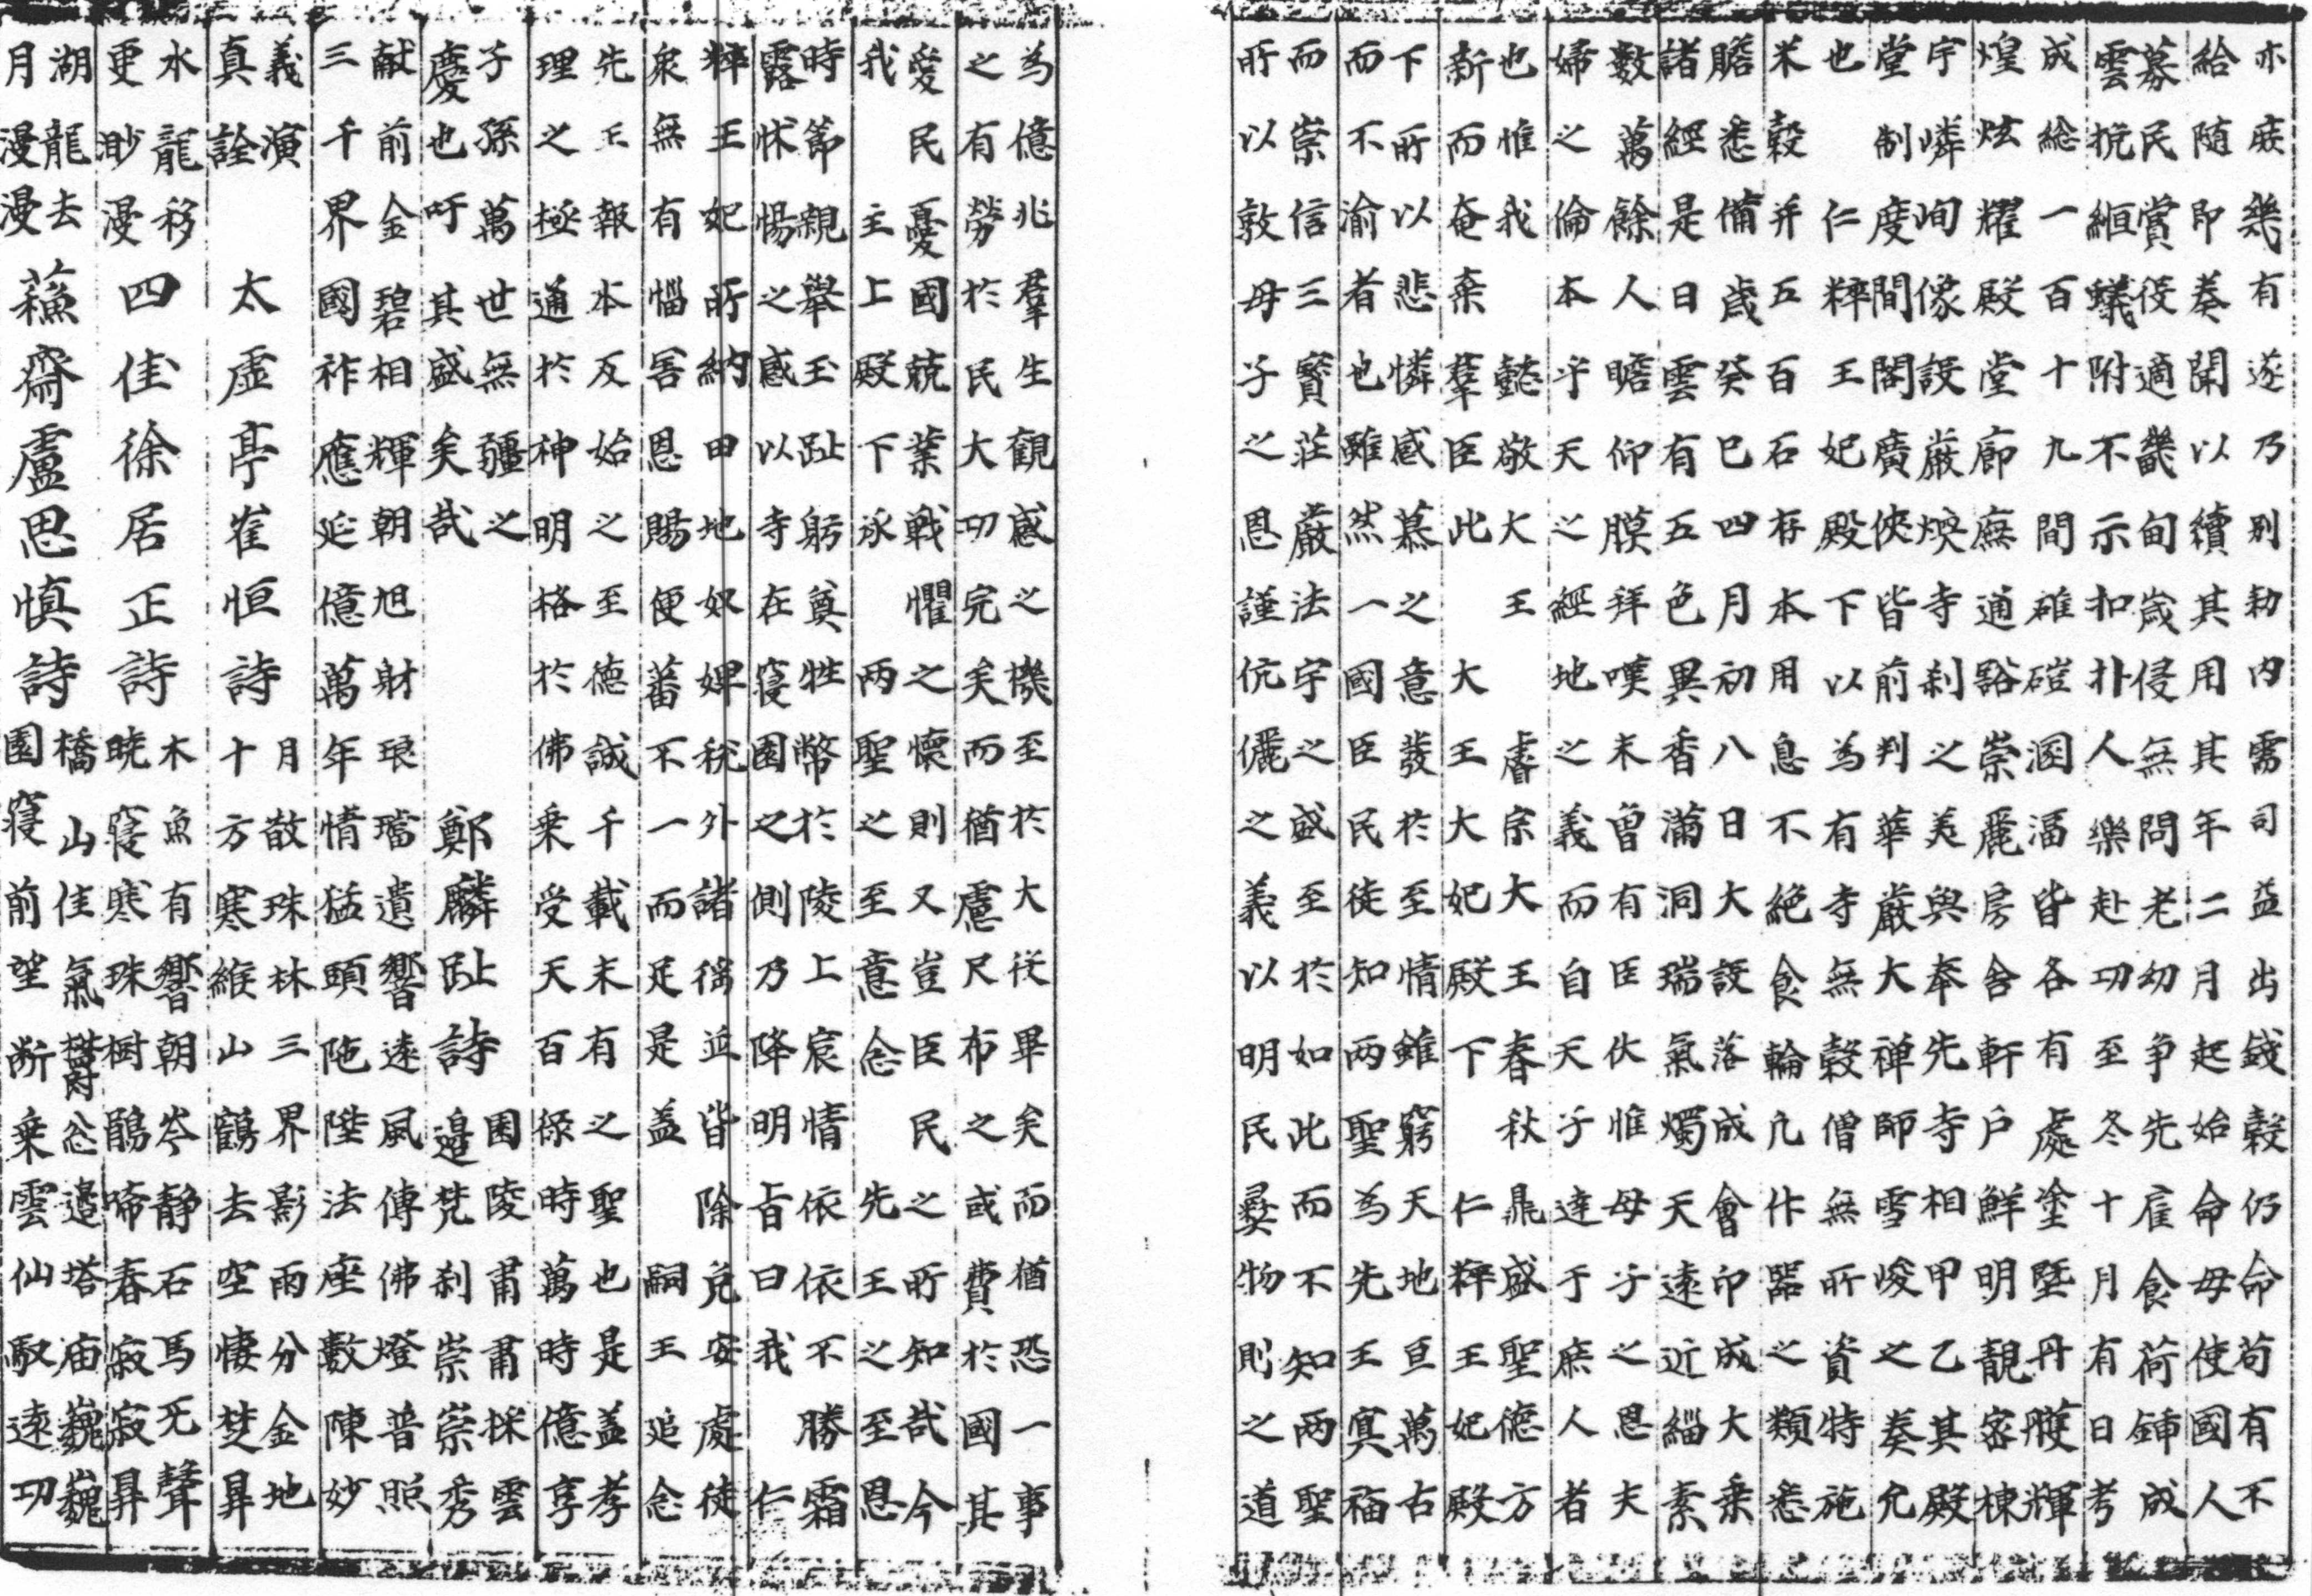 亦庶幾有遂乃別勅內需司益出錢穀仍命苟有不
給隨即奏聞以續其用其年二月起始命毋使國人
募民賞役適畿甸歲侵無問老幼爭先雇食荷鍤成
雲挽絙蟻附不示扣扑人樂赴功至冬十月有日考
成総一百十九間碓磑溷湢皆各有處塗塈丹雘輝
煌炫耀殿堂廊廡通豁崇麗房舍軒户鮮明靚密棟
宇嶙峋像設嚴煥寺刹之美與奉先寺相甲乙其殿
堂制度間閣廣俠皆前判華嚴大禅師雪峻之奏允
也 仁粹王妃殿下以為有寺無穀僧無所資特施
米穀并五百石存本用息不絶食輪凡什器之類悉
贍悉備歲癸巳四月初八日大設落成會印成大乗
諸經是日雲有五色異香滿洞瑞氣燭天遠近緇素
數萬餘人瞻仰膜拜嘆未曾有臣伏惟母子之恩夫
婦之倫本乎天之經地之義而自天子達于庶人者
也惟我 懿敬大王 睿宗大王春秋鼎盛聖德方
新而奄棄羣臣此 大王大妃殿下 仁粹王妃殿
下所以悲憐感慕之意發於至情雖窮天地亘萬古
而不渝者也雖然一國臣民徒知兩聖為先王冥福
而崇信三寳莊嚴法宇之盛至於如此而不知兩聖
所以敦母子之恩謹伉儷之義以明民彝物則之道
為億兆羣生觀感之機至於大役畢矣而猶恐一事
之有勞於民大功完矣而猶慮尺布之或費於國其
愛民憂國兢業戰懼之懷則又豈臣民之所知哉今
我 主上殿下承 兩聖之至意念 先王之至恩
時節親舉玉趾躬奠牲幣於陵上宸情依依不勝霜
露怵惕之感以寺在寝園之側乃降明旨曰我 仁
粹王妃所納田地奴婢稅外諸徭並皆除免安處徒
衆無有惱害恩賜便蕃不一而足是盖 嗣王追念
先王報本反始之至德誠千載未有之聖也是盖孝
理之極通於神明格於佛乗受天百祿時萬時億享
子孫萬世無疆之
慶也吁其盛矣哉
鄭麟趾詩
園陵肅肅採雲
邉梵刹崇崇秀
献前金碧相輝朝旭財琅璫遺響遠風傳佛燈普照
三千界國祚應延億萬年情猛頤陁陞法座數陳妙
義演
真詮
太虛亭崔恒詩
月散珠林三界影雨分金地
十方寒緱山鶴去空悽楚昪
水龍移
更渺漫
四佳徐居正詩
木魚有響朝岑静石馬死聲
暁寝寒珠樹鵑啼春寂寂昪
湖龍去
月漫漫
蘓齋盧思慎詩
橋山佳氣欝忩邉塔庙巍巍
園寝前望断乗雲仙馭遠功